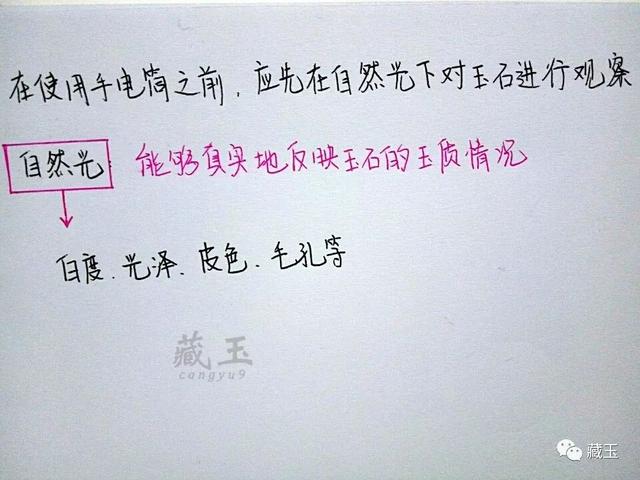 在使用手电筒之前，应先在自然光下对玉石进行观察
自然光：能够真实地反映玉石的玉质情况
白度、光泽、皮色、毛孔等
藏玉
cangyu9
藏玉